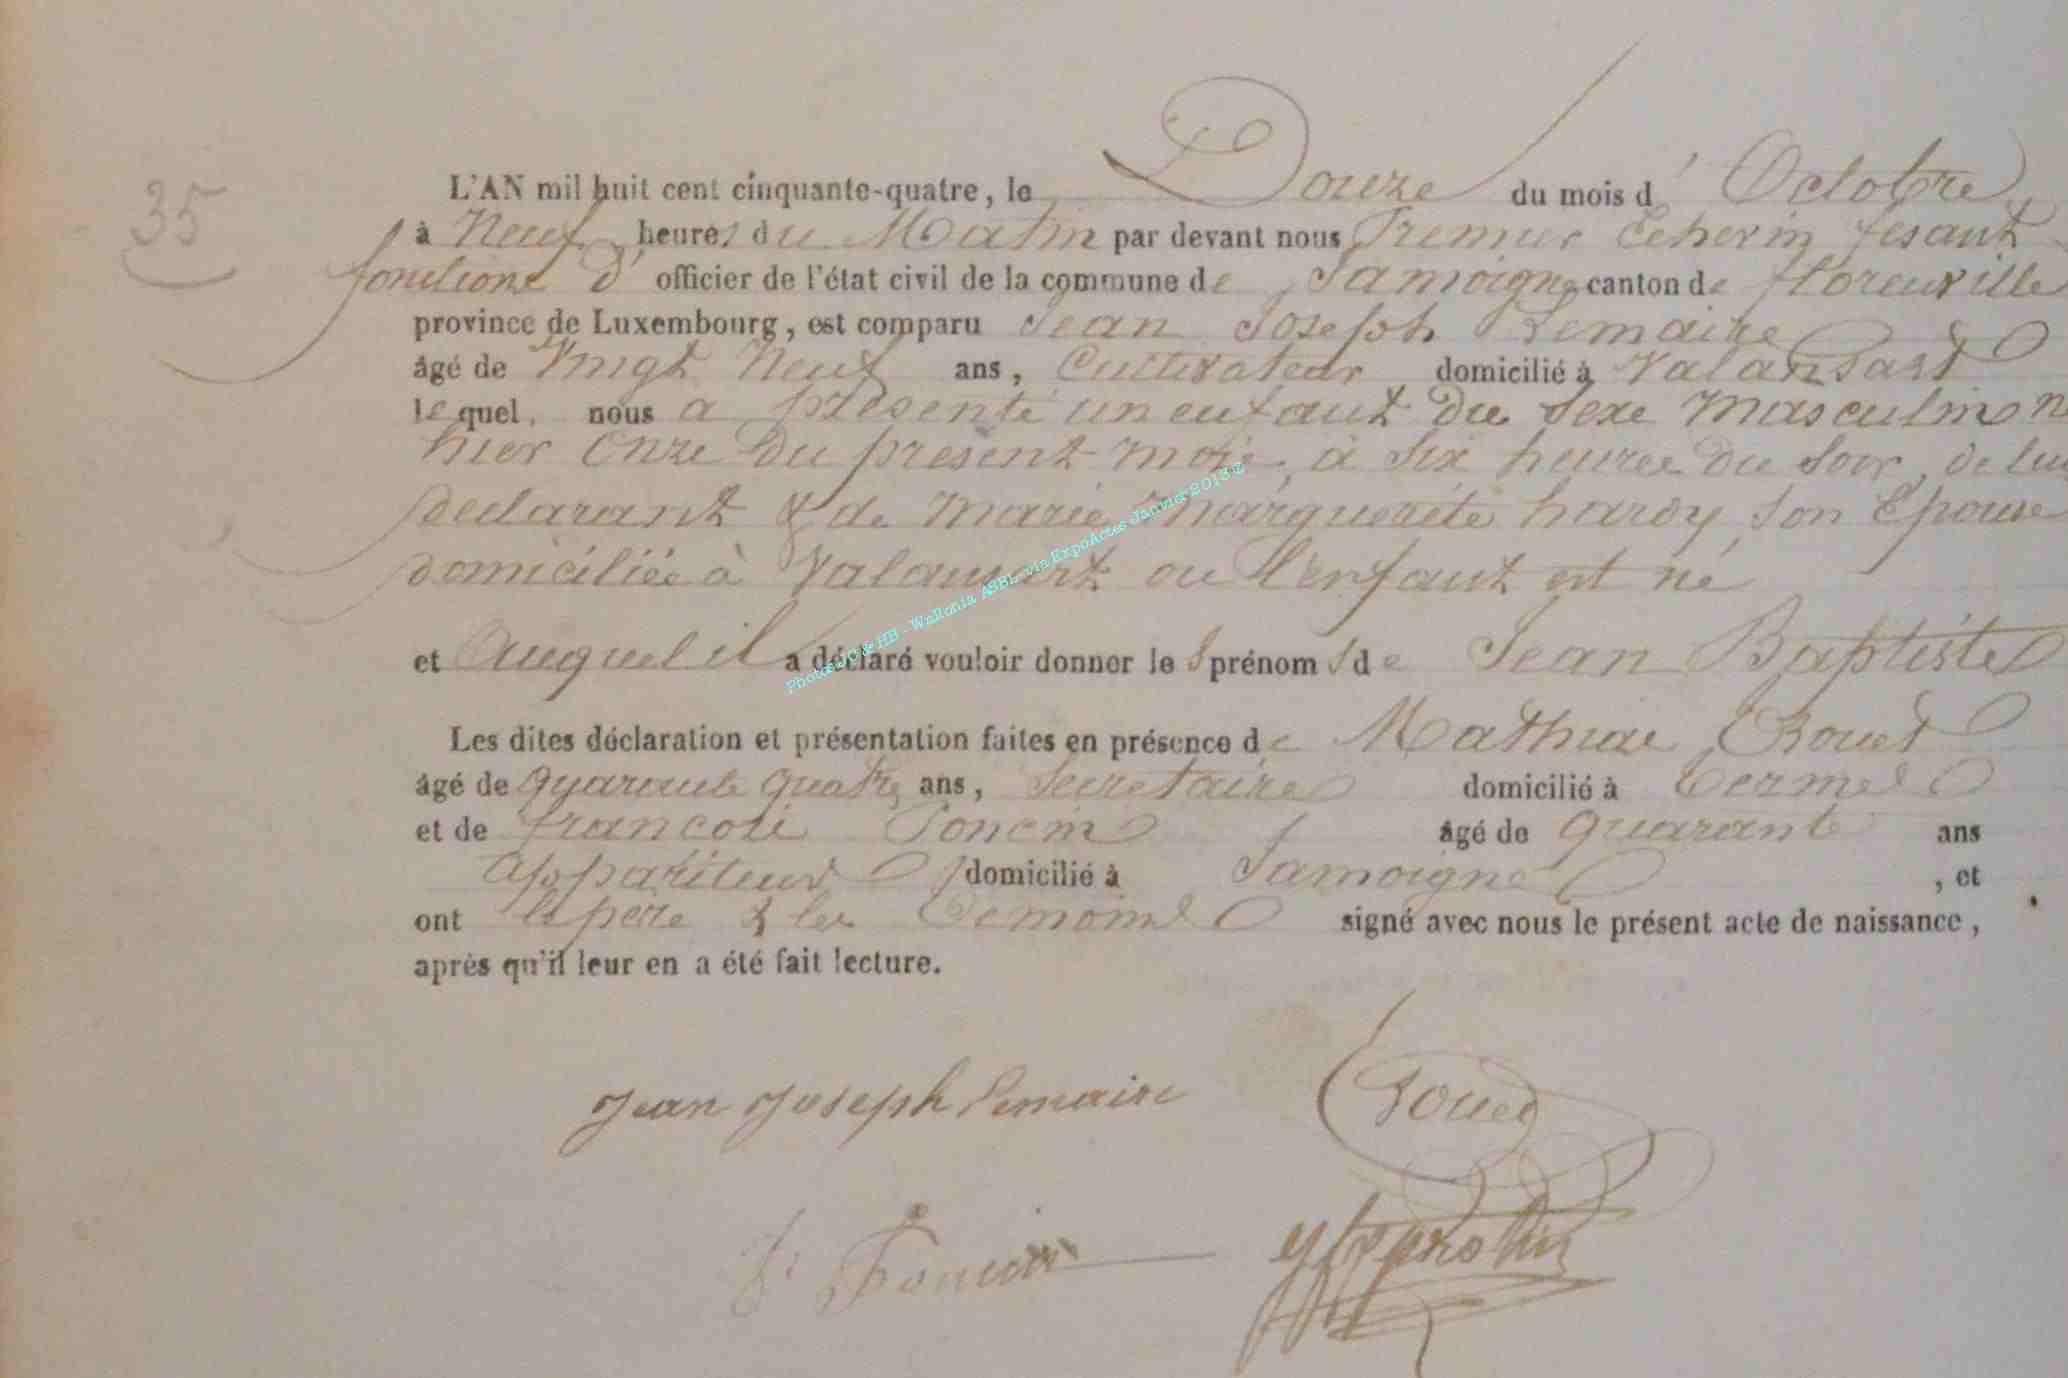 35
L'AN mil huit cent cinquante-quatre, le Douze du mois d'Octobre
à Neuf heures du Matin par devant nous Premier Echevin fesant
fonctions d' officier de l'état civil de la commune de Jamoigne canton de florenville
province de Luxembourg, est comparu Jean Joseph Lemaire
âgé de Vingt Neuf ans, Cultivateur domicilié à Valansart
lequel, nous a présenté un enfant du Sexe Masculin n
hier Onze du présent mois, à Six heures du Soir, de lui
declarant & de Marie Marguerite hardy son Epouse
domiciliée à Valansart ou l'enfant est né
et Auquel il a déclaré vouloir donner les prénoms de Jean Baptiste
Les dites déclaration et présentation faites en présence de Mathias Bouet
âgé de quarante quatre ans, Secretaire domicilié à Termes
et de francois Poncin âgé de quarante ans
appariteur domicilié à Jamoigne, et
ont le père & les temoins signé avec nous le présent acte de naissance,
après qu'il leur en a été fait lecture.
Jean Joseph Lemaire
Bouet
f Poncin
Photos JC & HB - WaRonia ASBL via ExpoActes Janvier 2013 c